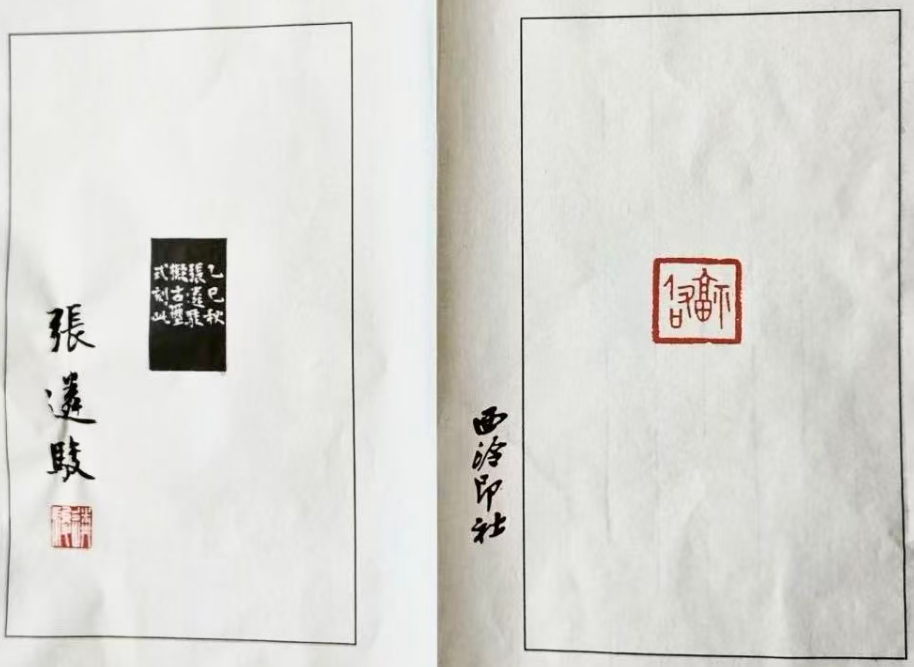 乙巳秋
張遴駿
擬古璽
式刻此
張遴駿
西泠印社